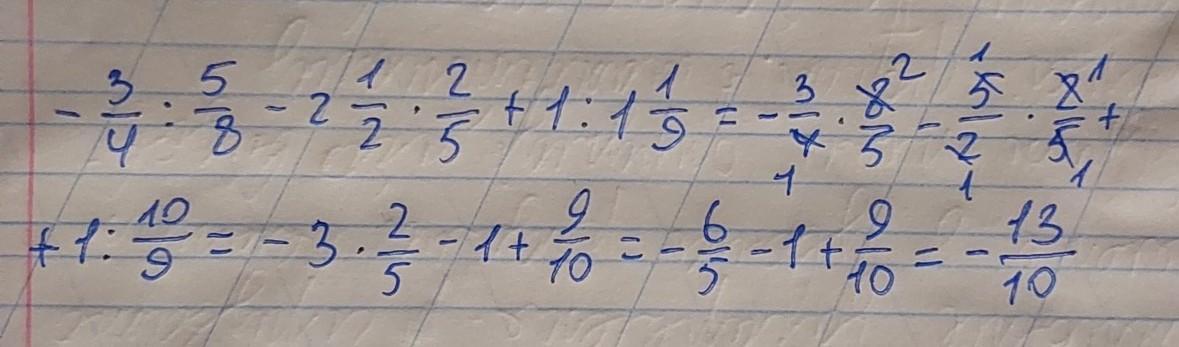 - 3/4 : 5/8 - 2 1/2 · 2/5 + 1 : 1 1/9 = - 3/4 · 8/5 2 1 - 5/2 · 2/5 1 +
1 1 1
+ 1 : 10/9 = - 3 · 2/5 - 1 + 9/10 = - 6/5 - 1 + 9/10 = - 13/10